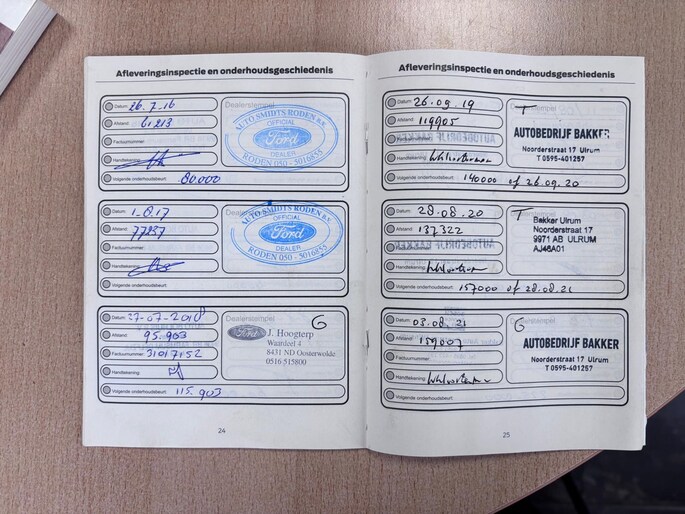 Afleveringsinspectie en onderhoudsgeschiedenis
Datum: 26.7.16
Afstand: 61213
Factuurnummer:
Handtekening:
Volgende onderhoudsbeurt: 80000
Dealerstempel
AUTO SMIDTS RODEN B.V.
OFFICIAL
Ford
DEALER
RODEN 050 - 5016855
Datum: 1-8.17
Afstand: 77237
Factuurnummer:
Handtekening:
Volgende onderhoudsbeurt:
AUTO SMIDTS RODEN B.V.
OFFICIAL
Ford
DEALER
RODEN 050 - 5016855
Datum: 27-07-2018
Afstand: 95.903
Factuurnummer: 31017152
Handtekening:
Volgende onderhoudsbeurt: 115.903
Dealerstempel
G
Ford
J. Hoogterp
Waardeel 4
8431 ND Oosterwolde
0516 515800
24
Afleveringsinspectie en onderhoudsgeschiedenis
Datum: 26.09.19
Afstand: 119905
Factuurnummer:
Handtekening:
Volgende onderhoudsbeurt: 140000 of 26.09.20
T
AUTOBEDRIJF BAKKER
Noorderstraat 17 Ulrum
T 0595-401257
Datum: 28.08.20
Afstand: 137322
Factuurnummer:
Handtekening:
Volgende onderhoudsbeurt: 157000 of 28.08.21
T
Bakker Ulrum
Noorderstraat 17
9971 AB ULRUM
AJ46A01
Datum: 03.08.21
Afstand: 159007
Factuurnummer:
Handtekening:
Volgende onderhoudsbeurt:
G
AUTOBEDRIJF BAKKER
Noorderstraat 17 Ulrum
T 0595-401257
25